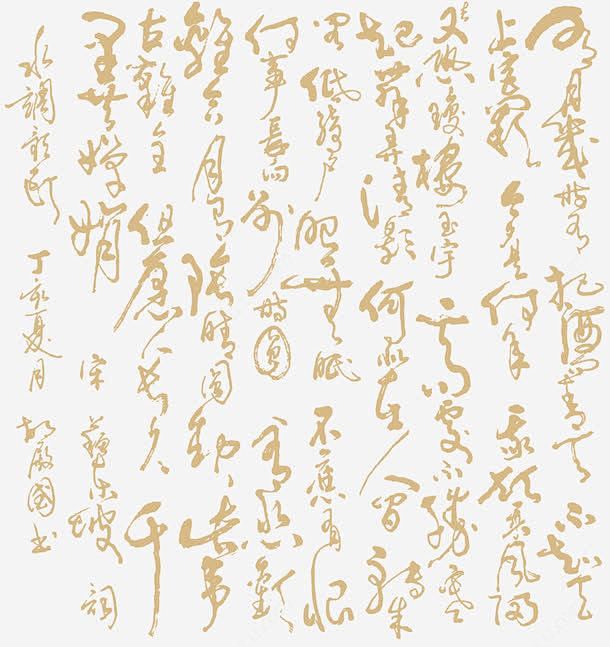 明月幾時有把酒問青天不知天
上宮闕今夕是何年我欲乘風歸
去又恐瓊樓玉宇高處不勝寒
起舞弄清影何似在人間轉朱
閣低綺戶照無眠不應有恨
何事長向別時圓人有悲歡
離合月有陰晴圓缺此事
古難全但願人長久千
里共嬋娟 宋 蘇東坡 詞
水調歌頭 丁亥夏月 國書